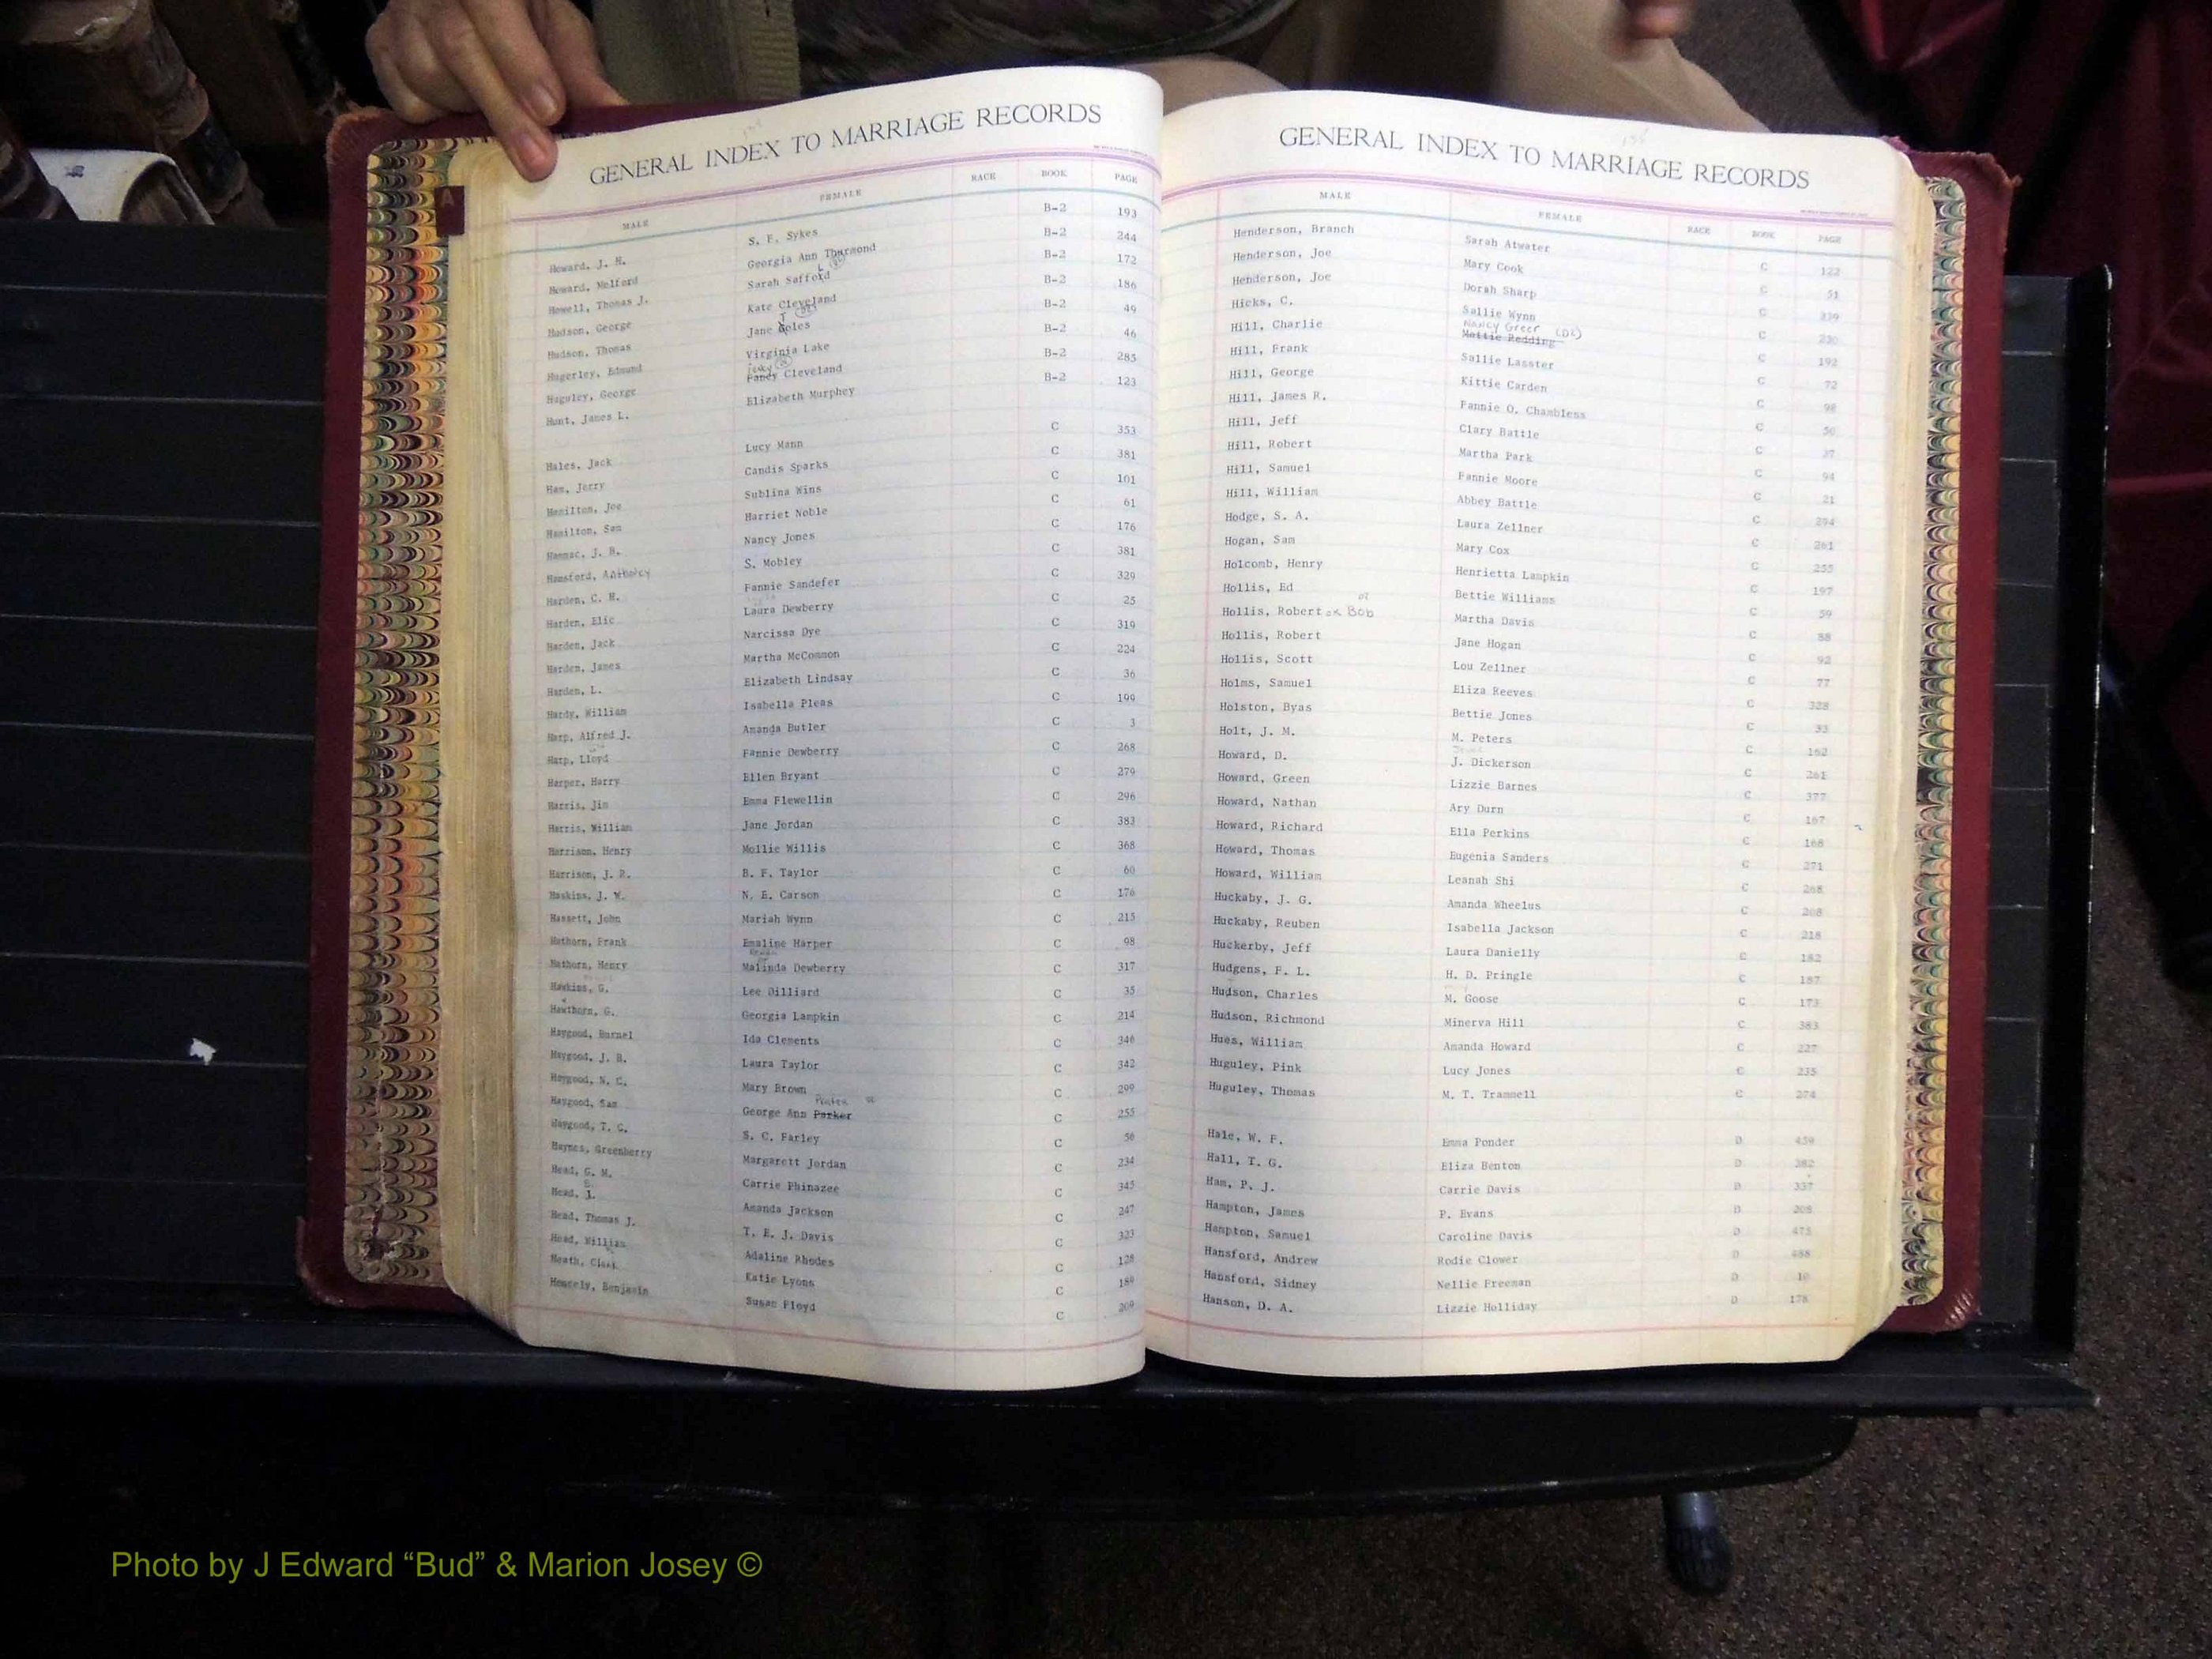 GENERAL INDEX TO MARRIAGE RECORDS
MALE FEMALE RACE BOOK PAGE
Howard, J. H. S. F. Sykes B-2 193
Howard, Melford Georgia Ann Thurmond B-2 244
Howell, Thomas J. Sarah Safford B-2 172
Hudson, George Kate Cleveland B-2 186
Hudson, Thomas Jane Coles B-2 49
Hugerley, Edmund Virginia Lake B-2 46
Huguley, George Fandy Cleveland B-2 285
Hunt, James L. Elizabeth Murphey B-2 123
Hales, Jack Lucy Mann C 353
Ham, Jerry Candis Sparks C 381
Hamilton, Joe Sublina Wins C 101
Hamilton, Sam Harriet Noble C 61
Hammac, J. B. Nancy Jones C 176
Hansford, Anthoncy S. Mobley C 381
Harden, C. H. Fannie Sandefer C 329
Harden, Elic Laura Dewberry C 25
Harden, Jack Narcissa Dye C 319
Harden, James Martha McCommon C 224
Harden, L. Elizabeth Lindsay C 36
Hardy, William Isabella Pleas C 199
Harp, Alfred J. Amanda Butler C 3
Harp, Lloyd Fannie Dewberry C 268
Harper, Harry Ellen Bryant C 279
Harris, Jim Emma Flewellin C 296
Harris, William Jane Jordan C 383
Harrison, Henry Mollie Willis C 368
Harrison, J. R. B. F. Taylor C 60
Haskins, J. W. N. E. Carson C 176
Hassett, John Mariah Wynn C 215
Hathorn, Frank Emaline Harper C 98
Hathorn, Henry Malinda Dewberry C 317
Hawkins, G. Lee Dilliard C 35
Hawthorn, G. Georgia Lampkin C 214
Haygood, Burnel Ida Clements C 346
Haygood, J. B. Laura Taylor C 342
Haygood, N. C. Mary Brown C 299
Haygood, Sam George Ann Parker C 255
Haygood, T. G. S. C. Farley C 56
Haynes, Greenberry Margarett Jordan C 234
Head, G. M. Carrie Phinazee C 345
Head, J. Amanda Jackson C 247
Head, Thomas J. T. E. J. Davis C 323
Head, William Adaline Rhodes C 128
Heath, Clark Katie Lyons C 189
Hencely, Benjamin Susan Floyd C 209
GENERAL INDEX TO MARRIAGE RECORDS
MALE FEMALE RACE BOOK PAGE
Henderson, Branch Sarah Atwater C 122
Henderson, Joe Mary Cook C 51
Henderson, Joe Dorah Sharp C 339
Hicks, C. Sallie Wynn C 230
Nancy Greer (DR)
Hill, Charlie Mattie Redding C 192
Hill, Frank Sallie Lasster C 72
Hill, George Kittie Carden C 98
Hill, James R. Fannie O. Chambless C 50
Hill, Jeff Clary Battle C 37
Hill, Robert Martha Park C 94
Hill, Samuel Fannie Moore C 21
Hill, William Abbey Battle C 294
Hodge, S. A. Laura Zellner C 261
Hogan, Sam Mary Cox C 255
Holcomb, Henry Henrietta Lampkin C 197
Hollis, Ed Bettie Williams C 59
Hollis, Robert or Bob Martha Davis C 88
Hollis, Robert Jane Hogan C 92
Hollis, Scott Lou Zellner C 77
Holms, Samuel Eliza Reeves C 328
Holston, Byas Bettie Jones C 33
Holt, J. M. M. Peters C 162
Howard, D. J. Dickerson C 261
Howard, Green Lizzie Barnes C 377
Howard, Nathan Ary Durn C 167
Howard, Richard Ella Perkins C 168
Howard, Thomas Eugenia Sanders C 271
Howard, William Leanah Shi C 268
Huckaby, J. G. Amanda Wheelus C 208
Huckaby, Reuben Isabella Jackson C 218
Huckerby, Jeff Laura Danielly C 182
Hudgens, F. L. H. D. Pringle C 187
Hudson, Charles M. Goose C 173
Hudson, Richmond Minerva Hill C 383
Hues, William Amanda Howard C 227
Huguley, Pink Lucy Jones C 235
Huguley, Thomas M. T. Trammell C 274
Hale, W. F. Emma Ponder D 459
Hall, T. G. Eliza Benton D 382
Ham, P. J. Carrie Davis D 337
Hampton, James P. Evans D 208
Hampton, Samuel Caroline Davis D 475
Hansford, Andrew Rodie Clower D 488
Hansford, Sidney Nellie Freeman D 10
Hanson, D. A. Lizzie Holliday D 178
Photo by J Edward “Bud” & Marion Josey ©